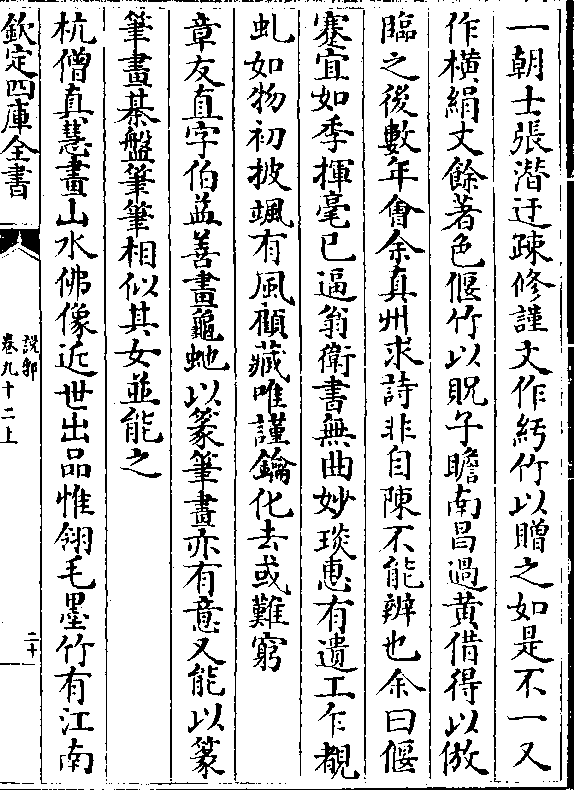 一朝士張潛迂疎修謹文作紆竹以贈之如是不一又
作橫絹丈餘著色偃竹以貺子瞻南昌過黃借得以倣
臨之後數年㑹余真州求詩非自陳不能辨也余曰偃
蹇宜如季揮毫已逼翁衛書無曲妙琰惠有遺工乍覩
虬如物初披颯有風顧藏唯謹鑰化去或難窮
章友直字伯益善畫龜虵以篆筆畫亦有意又能以篆
筆畫棊盤筆筆相似其女並能之
杭僧真慧畫山水佛像近世出品惟翎毛墨竹有江南
欽定四庫全書
説郛
卷九十二上
二十